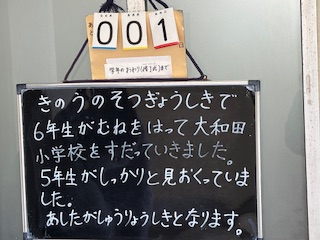 あと
001
日
学年のおわり(修了式)まで
きのうのそつぎょうしきで
6年生がむねをはって大和田
小学校をすだっていきました。
5年生がしっかりと見おくっていま
した。
あしたがしゅうりょうしきとなります。